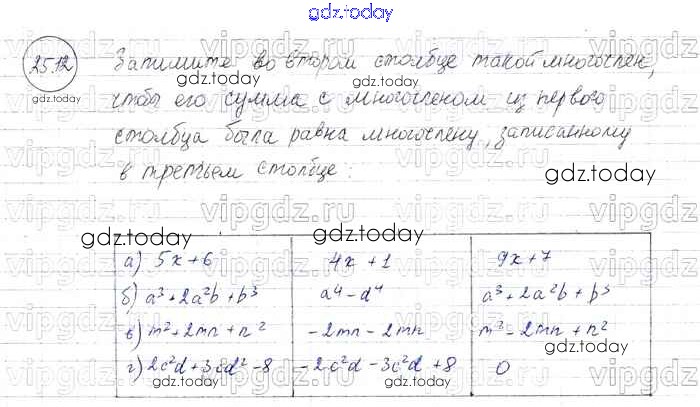 gdz.today
25.12
Запишите во втором столбце такой многочлен,
чтобы его сумма с многочленом из первого
столбца была равна многочлену, записанному
в третьем столбце:
gdz.today
gdz.today
gdz.today
gdz.today
gdz.today
gdz.today
а) 5x+6 4x+1 9x+7
б) a³+2a²b+b³ a⁴-d⁴ a³+2a²b+b³
в) m²+2mn+n² -2mn-2mn m²-2mn+n²
г) 2c²d+3cd²-8 -2c²d-3c²d+8 0
gdz.today
gdz.today
gdz.today
vipgdz.ru